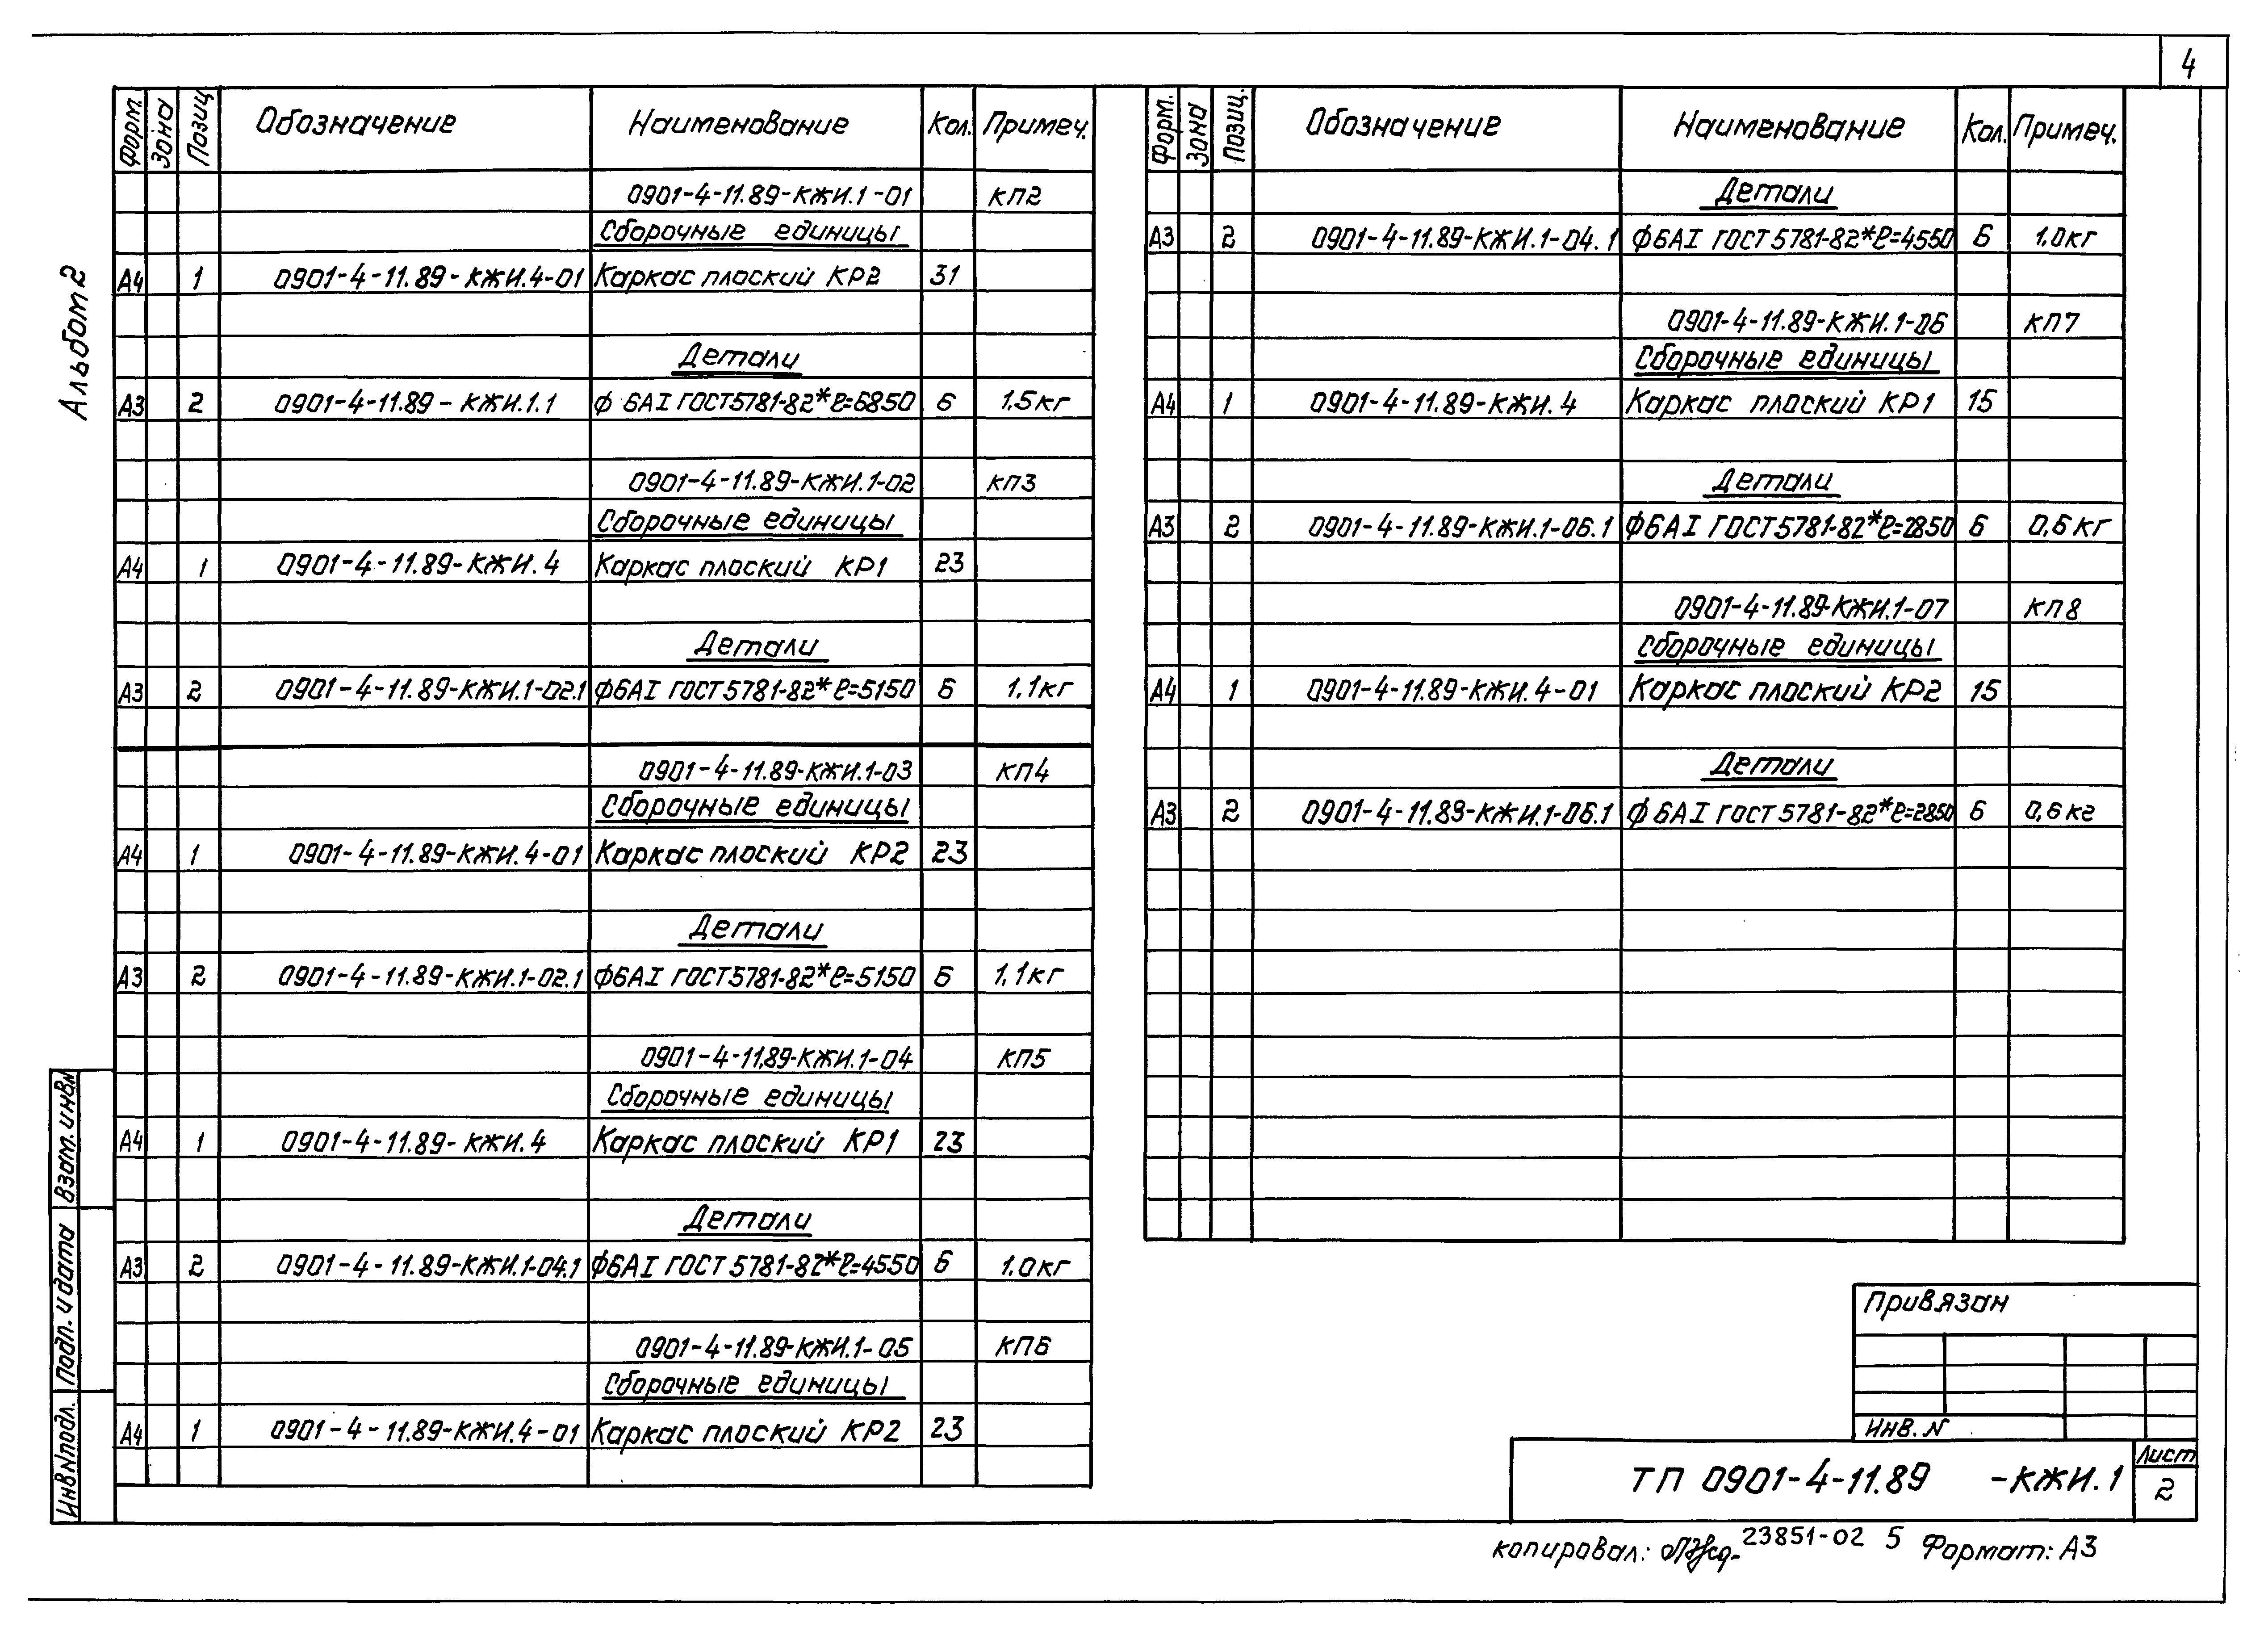 4
Альбом 2
Форм. Зона Позиц Обозначение Наименование Кол. Примеч.
0901-4-11.89-КЖИ.1-01 КП2
Сборочные единицы
А4 1 0901-4-11.89-КЖИ.4-01 Каркас плоский КР2 31
Детали
А3 2 0901-4-11.89-КЖИ.1.1 Ф 6АI ГОСТ 5781-82* ℓ=6850 6 1.5кг
0901-4-11.89-КЖИ.1-02 КП3
Сборочные единицы
А4 1 0901-4-11.89-КЖИ.4 Каркас плоский КР1 23
Детали
А3 2 0901-4-11.89-КЖИ.1-02.1 Ф6АI ГОСТ 5781-82* ℓ=5150 6 1,1кг
0901-4-11.89-КЖИ.1-03 КП4
Сборочные единицы
А4 1 0901-4-11.89-КЖИ.4-01 Каркас плоский КР2 23
Детали
А3 2 0901-4-11.89-КЖИ.1-02.1 Ф6АI ГОСТ 5781-82* ℓ=5150 6 1,1кг
0901-4-11,89-КЖИ.1-04 КП5
Сборочные единицы
А4 1 0901-4-11.89-КЖИ.4 Каркас плоский КР1 23
Детали
А3 2 0901-4-11.89-КЖИ.1-04.1 Ф6АI ГОСТ 5781-82* ℓ=4550 6 1.0кг
0901-4-11.89-КЖИ.1-05 КП6
Сборочные единицы
А4 1 0901-4-11.89-КЖИ.4-01 Каркас плоский КР2 23
Форм. Зона Позиц. Обозначение Наименование Кол. Примеч.
Детали
А3 2 0901-4-11.89-КЖИ.1-04.1 Ф6АI ГОСТ 5781-82* ℓ=4550 6 1.0кг
0901-4-11.89-КЖИ.1-06 КП7
Сборочные единицы
А4 1 0901-4-11.89-КЖИ.4 Каркас плоский КР1 15
Детали
А3 2 0901-4-11.89-КЖИ.1-06.1 Ф6АI ГОСТ 5781-82* ℓ=2850 6 0,6кг
0901-4-11.89-КЖИ.1-07 КП8
Сборочные единицы
А4 1 0901-4-11.89-КЖИ.4-01 Каркас плоский КР2 15
Детали
А3 2 0901-4-11.89-КЖИ.1-06.1 Ф 6АI ГОСТ 5781-82* ℓ=2850 6 0,6кг
Взам. инв.N
Подп. и дата
Инв N подл.
Привязан
Инв. N
ТП 0901-4-11.89 -КЖИ.1
Лист
2
копировал: 23851-02 5 Формат: А3